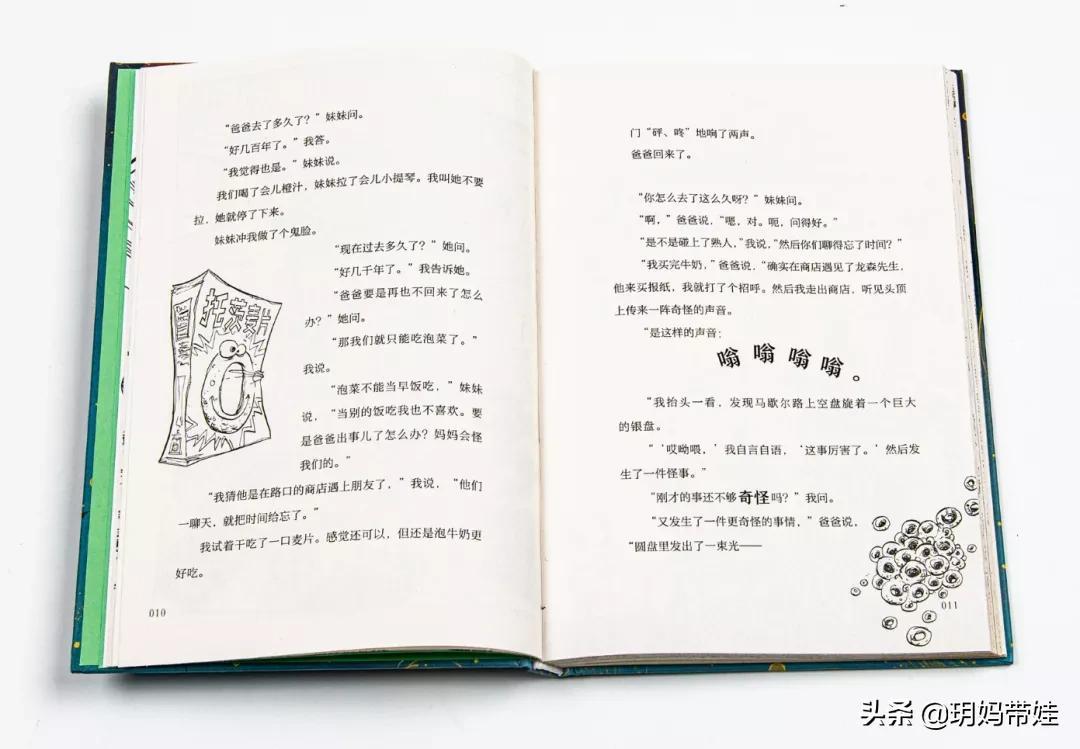 “爸爸去了多久了？”妹妹问。
“好几百年了。”我答。
“我觉得也是。”妹妹说。
我们喝了会儿橙汁，妹妹拉了会儿小提琴。我叫她不要
拉，她就停了下来。
妹妹冲我做了个鬼脸。
“现在过去多久了？”她问。
“好几千年了。”我告诉她。
“爸爸要是再也不回来了怎么
办？”她问。
“那我们就只能吃泡菜了。”
我说。
“泡菜不能当早饭吃，”妹妹
说，“当别的饭吃我也不喜欢。要
是爸爸出事儿了怎么办？妈妈会怪
我们的。”
“我猜他是在路口的商店遇上朋友了，”我说，“他们
一聊天，就把时间给忘了。”
我试着干吃了一口麦片。感觉还可以，但还是泡牛奶更
好吃。
托茨麦片
010
门“砰、咚”地响了两声。
爸爸回来了。
“你怎么去了这么久呀？”妹妹问。
“啊，”爸爸说，“嗯，对。呃，问得好。”
“是不是碰上了熟人，”我说，“然后你们聊得忘了时间？”
“我买完牛奶，”爸爸说，“确实在商店遇见了龙森先生，
他来买报纸，我就打了个招呼。然后我走出商店，听见头顶
上传来一阵奇怪的声音。
“是这样的声音：
嗡嗡嗡嗡。
“我抬头一看，发现马歇尔路上空盘旋着一个巨大
的银盘。
“‘哎呦喂，’我自言自语，‘这事厉害了。’然后发
生了一件怪事。”
“刚才的事还不够奇怪吗？”我问。
“又发生了一件更奇怪的事情，”爸爸说，
“圆盘里发出了一束光——
011
头条 @玥妈带娃